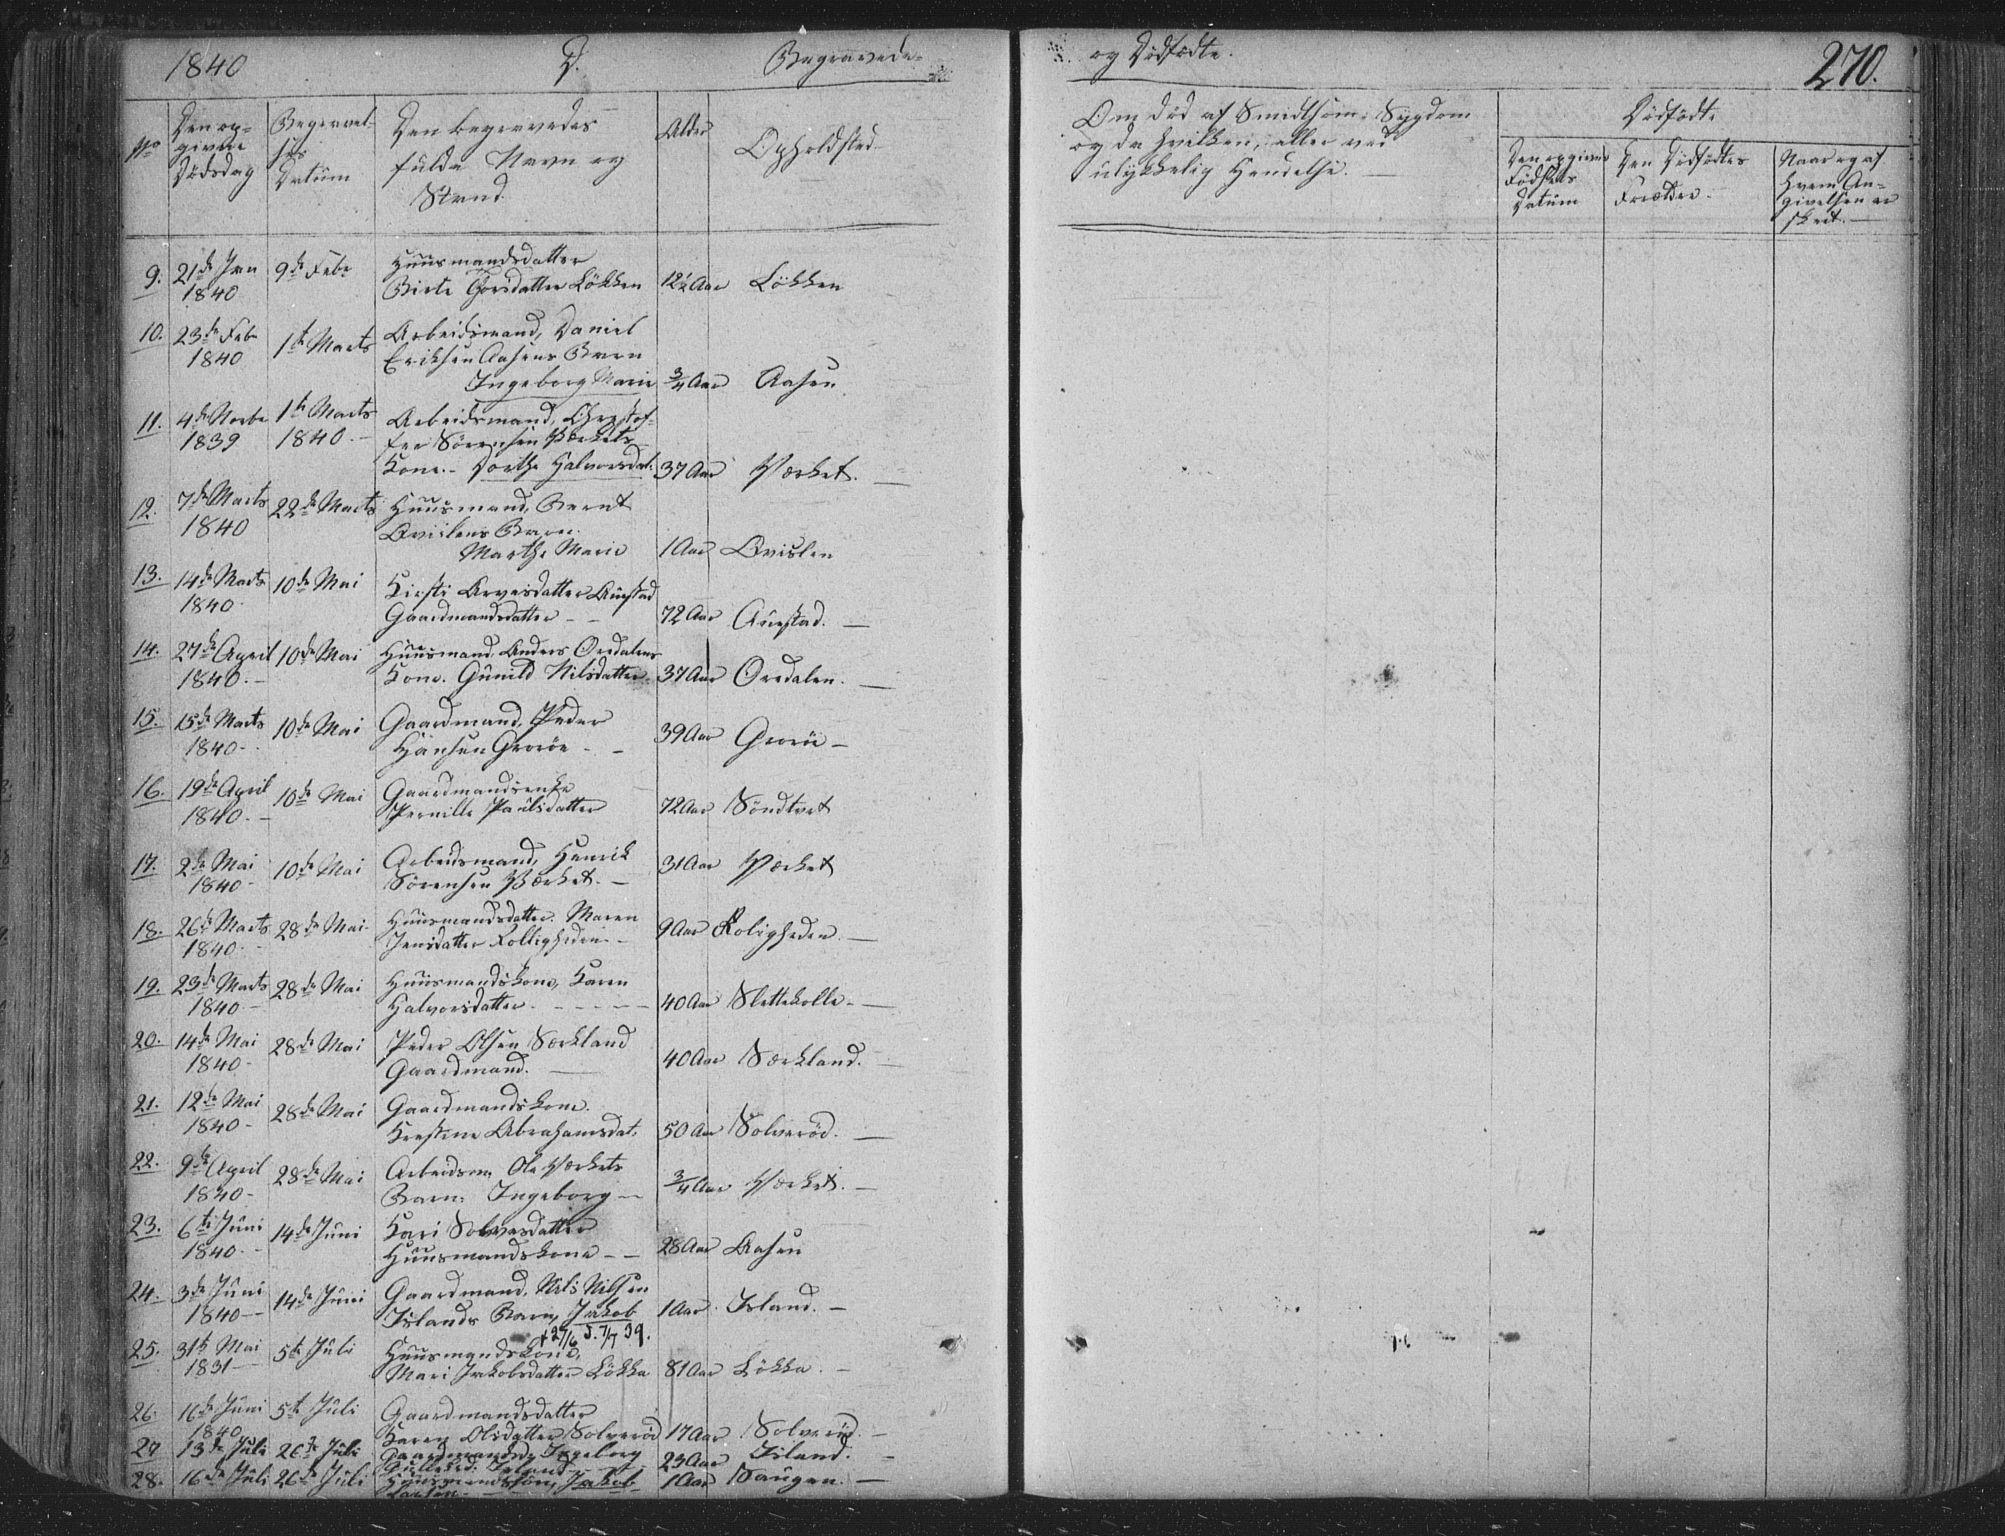 1840 D. Begravede
og Dödfødte. 270.
No
Den op-
givne
Dødsdag
Begravel-
ses
Datum
Den begravedes
fulde Navn og
Stand.
Alder
Opholdsted
Om död af Smidtsom Sygdom
og da hvilken, eller ved
ulykkelig Hendelse. —
Dödfödte
Den opgivne
Födsels
Datum
Den Dödfödtes
Forældre.
Naar og af
hvem An-
givelsen er
skeet. —
9. 21de Jan 1840 9de Febr
Huusmandsdatter
Birte Thorsdatter Lökken 12½ Aar Lökken
10. 23de Feb 1840 1te Marts
Arbeidsmand, Daniel
Eriksen Aasens Barn
Ingeborg Marie 3/4 Aar Aasen
11. 4de Novbr 1839 1te Marts 1840
Arbeidsmand, Christof-
fer Sörensen Værkets
Kone - Dorthe Halvorsdat. 37 Aar Værket.
12. 7de Marts 1840 22de Marts
Huusmand, Bernt
Qvislens Barn
Marthe Marie 1 Aar Qvislen
13. 14de Marts 1840 10de Mai
Kirsti Arvesdatter Aurstad
Gaardmandsdatter - - 72 Aar Aurstad. —
14. 27de April 1840. 10de Mai
Huusmand Anders Oredalens
Kone. Gunild Nilsdatter 37 Aar Oredalen. —
15. 15de Marts 1840 10de Mai
Gaardmand, Peder
Hansen Groröe - - 39 Aar Groröe —
16. 19de April 1840. 10de Mai
Gaardmandsenke
Pernille Paulsdatter 72 Aar Söndtvet
17. 2de Mai 1840 10de Mai
Arbeidsmand, Henrik
Sörensen Værket. — 31 Aar Værket
18. 26de Marts 1840 28de Mai
Huusmandsdatter. Maren
Jensdatter Rolligheden - 9 Aar Roligheden. —
19. 23de Marts 1840 28de Mai
Huusmandskone, Karen
Halvorsdatter - - - - 40 Aar Slettekolle —
20. 14de Mai 1840 28de Mai
Peder Olsen Særkland
Gaardmand. — 40 Aar Særkland.
21. 12de Mai 1840 28de Mai
Gaardmandskone.
Kristine Abrahamsdat. 50 Aar Solveröd. —
22. 9de April 1840 28de Mai
Arbeidsm. Ole Værkets
Barn: Ingeborg — 3/4 Aar Værket. —
23. 6te Juni 1840 14de Juni
Kari Solvesdatter
Huusmandskone - - 28 Aar Aasen
24. 3de Juni 1840 14de Juni
Gaardmand, Nils Nilsen
Islands Barn, Jakob 1 Aar. Island. —
+ 27/6 d. 7/7 39.
25. 31te Mai 1831 5te Juli
Huusmandskone,
Mari Jakobsdatter Lökka 81 Aar Lökka. —
26. 16de Juni 1840 5te Juli
Gaardmandsdatter
Karen Olsdatter Solveröd 17 Aar Solveröd. —
27 13de Juli 26de Juli
Ingeborg
Island 23 Aar Island.
28. 16de Juli 26de Juli
Huusmandssön, Jakob 1 Aar Saugen. —